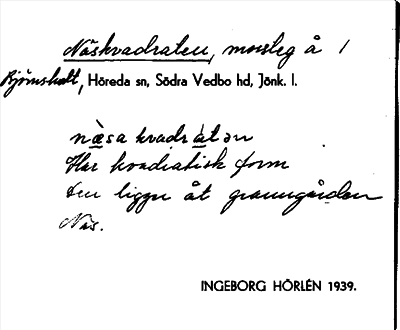 Näskvadraten, mosleg å 1
Björnshult, Höreda sn, Södra Vedbo hd, Jönk. l.
næsa kvadratən
Har kvadratisk form
Den ligger åt granngården
Näs.
INGEBORG HÖRLÉN 1939.